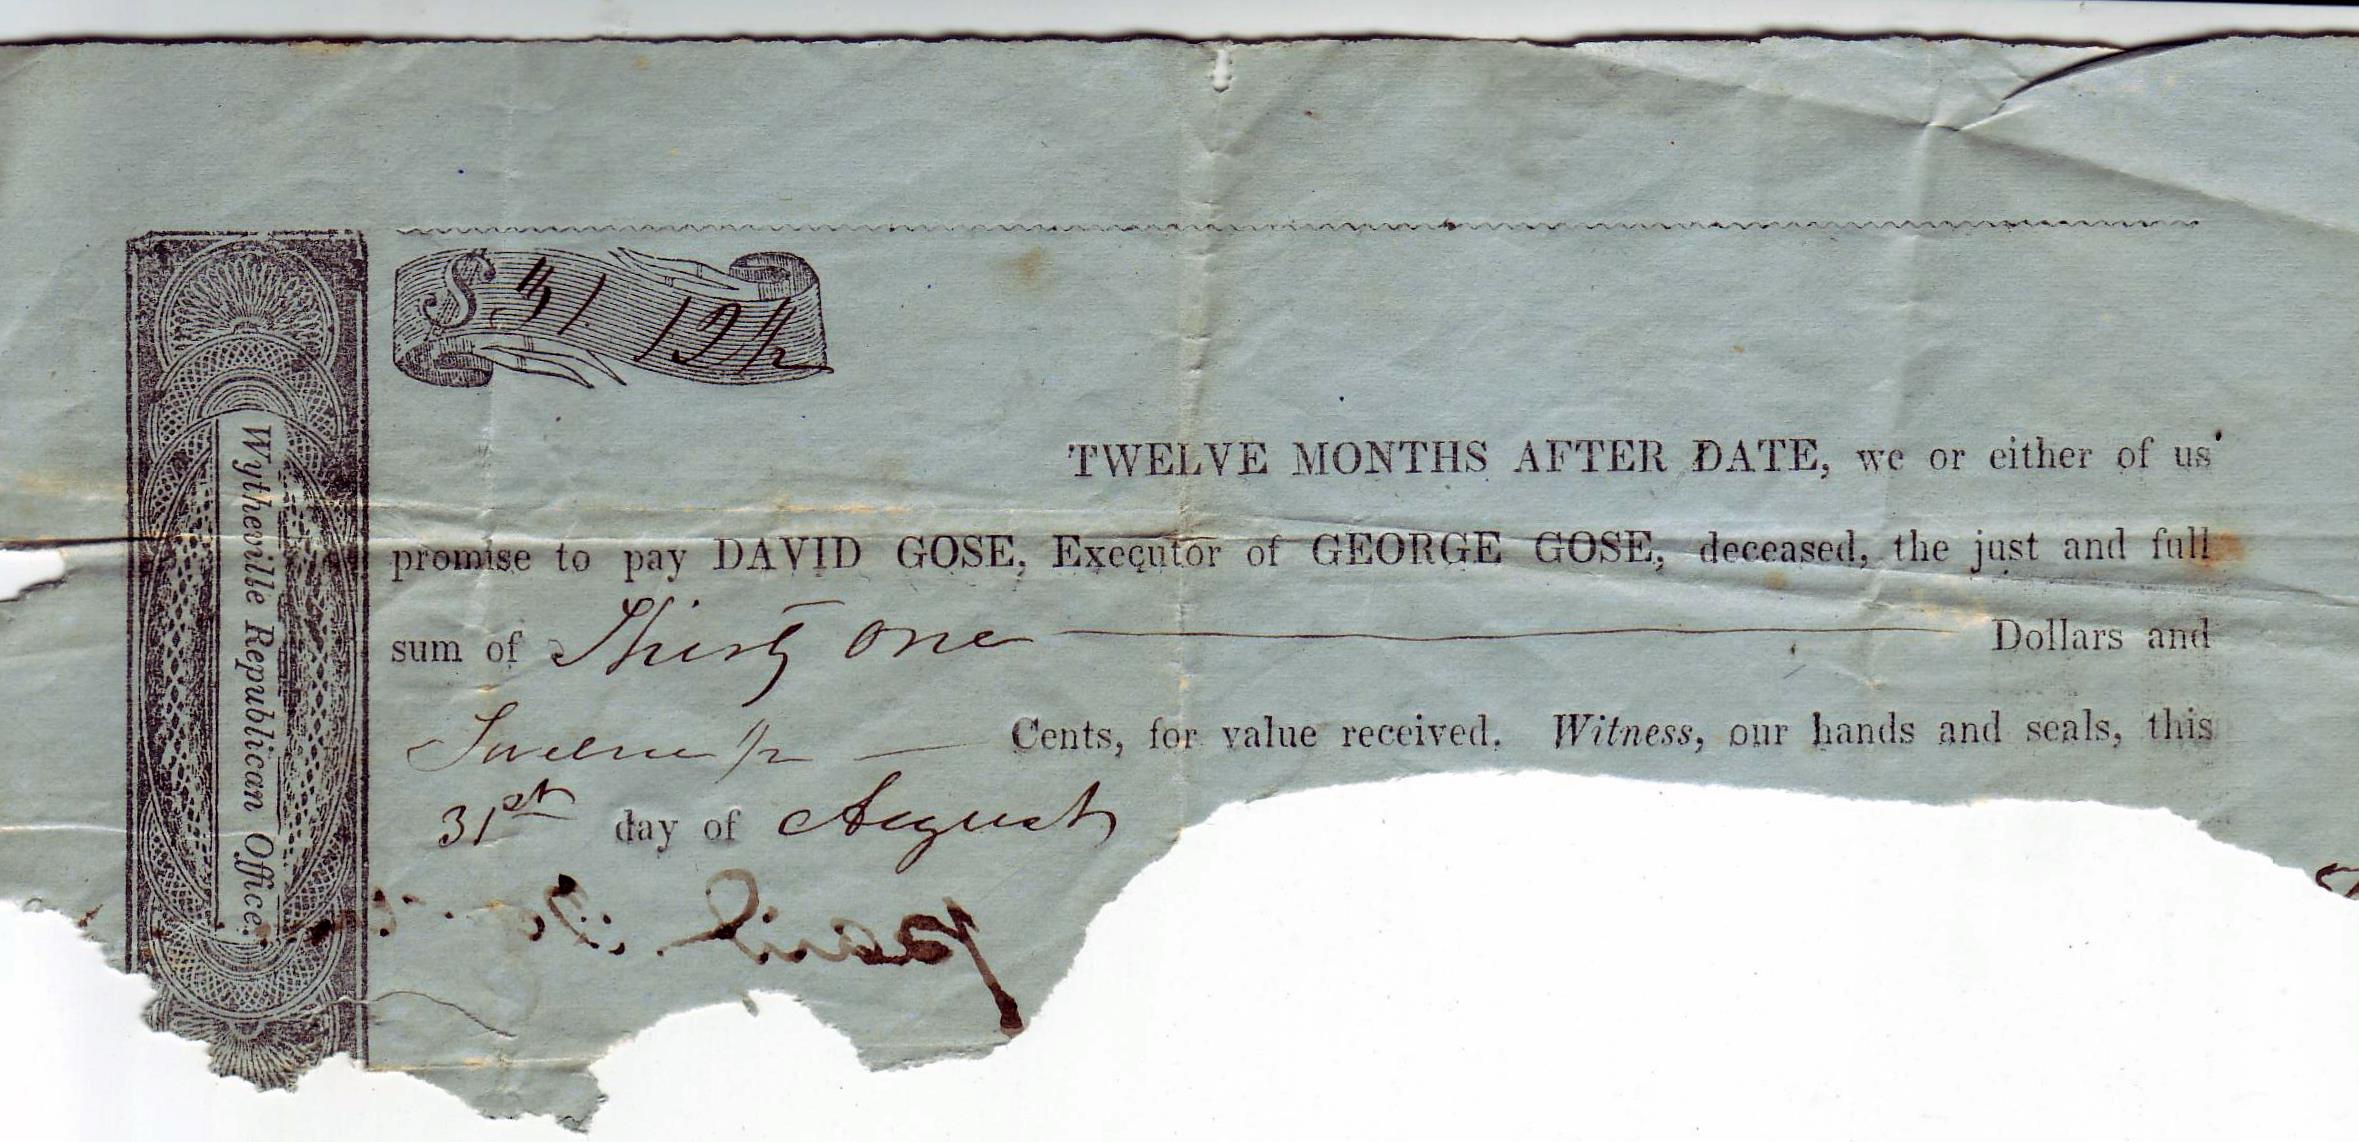 Wytheville Republican Office.
$ 31 12½
TWELVE MONTHS AFTER DATE, we or either of us
promise to pay DAVID GOSE, Executor of GEORGE GOSE, deceased, the just and full
sum of Thirty one Dollars and
Twelve ½ Cents, for value received. Witness, our hands and seals, this
31st day of August
paid